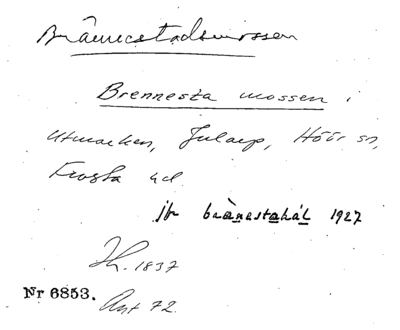 Brännestadsmossen
Brennesta mossen i
Utmarken, Jularp, Höör sn,
Frosta hd.
jfr brànestahál 1927
Ih. 1837
Nr 6853.
Ant 72.